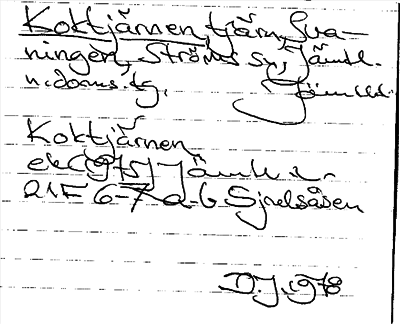 Koktjärnen, tjärn, Sva-
ningen, Ströms sn, Jämtl.
n. doms. tg, Jämtl
Koktjärnen
ek (1975) Jämtl
21F 6-7 a-b Sjoelsåsen
D.J. 1978